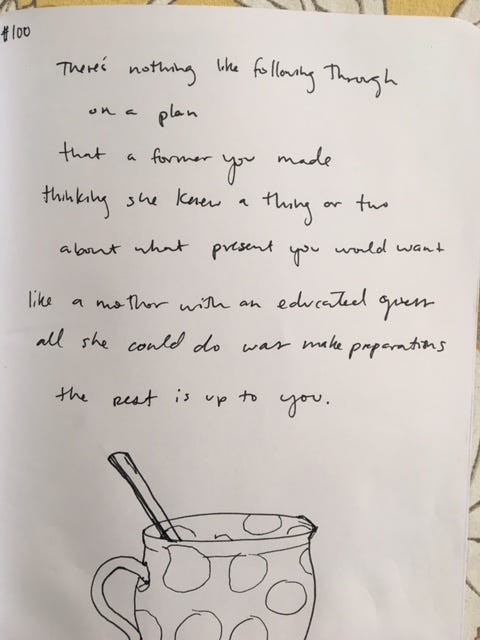 #100
There's nothing like following through
on a plan
that a former you made
thinking she knew a thing or two
about what present you would want
like a mother with an educated guess
all she could do was make preparations
the rest is up to you.